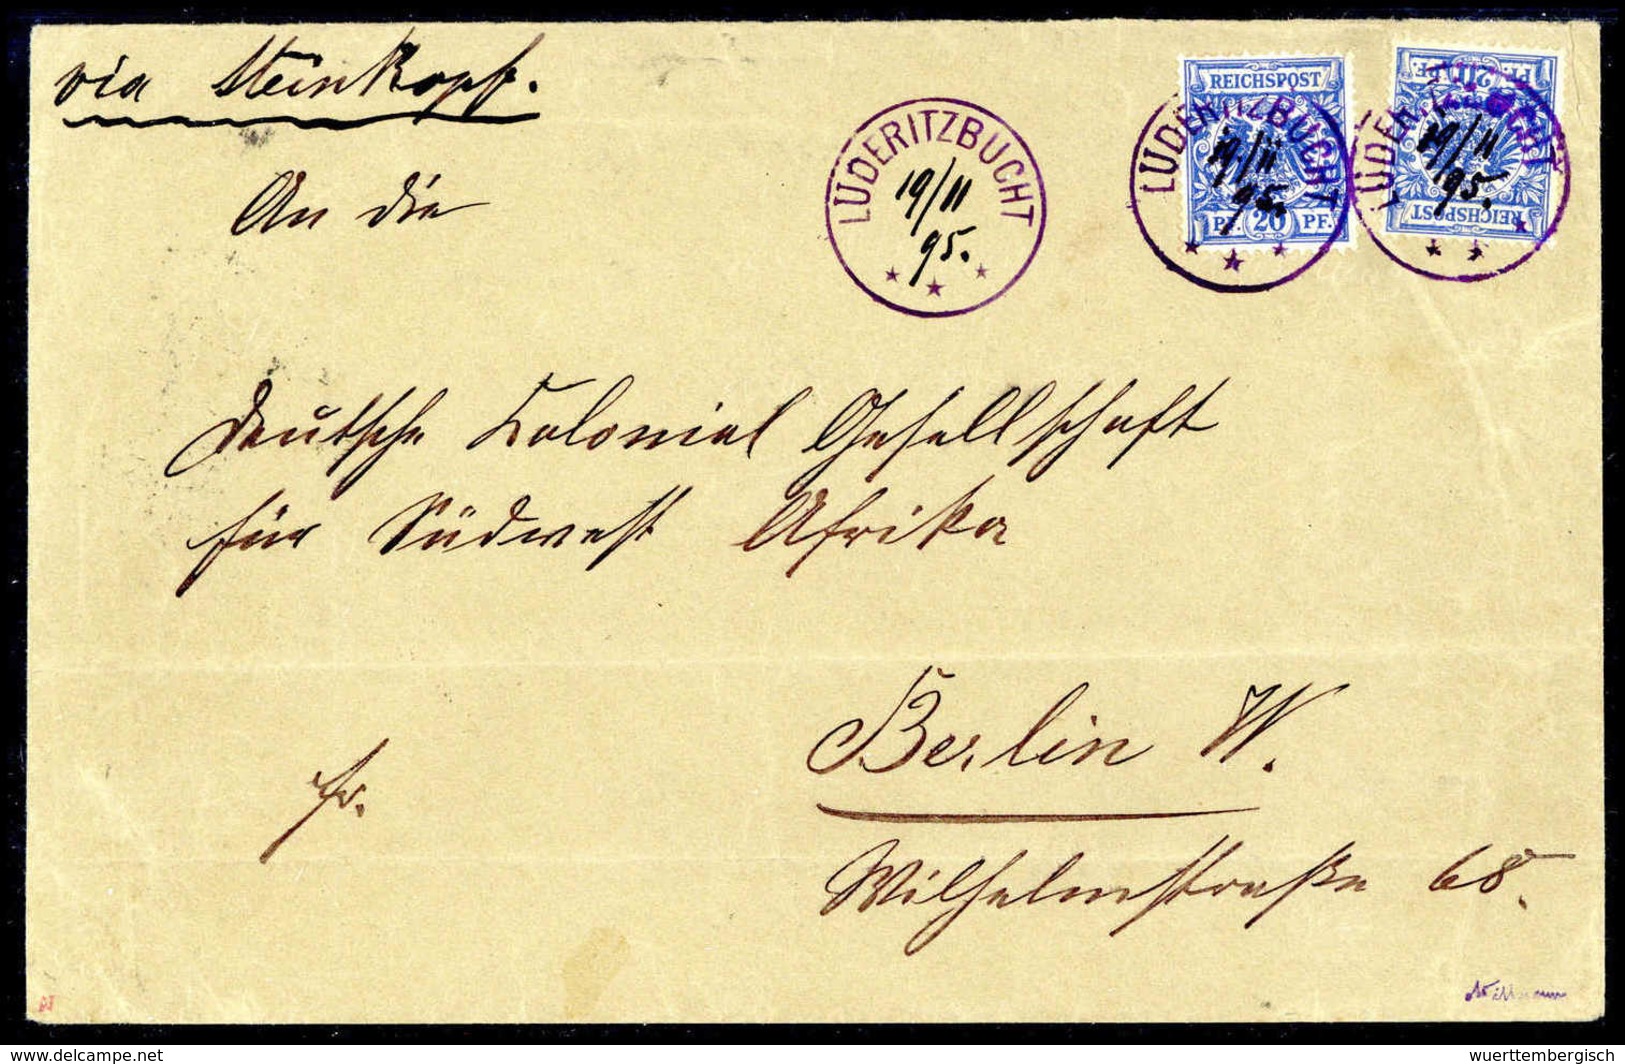 via Steinkopf.
LÜDERITZBUCHT
19/11
95.
REICHSPOST
LÜDERITZBUCHT
19/11
95.
PF. 20 PF.
PF. 20 PF.
LÜDERITZBUCHT
19/11
95.
REICHSPOST
An die
Deutsche Kolonial Gesellschaft
für Südwest Afrika
Berlin W.
fr.
Wilhelmstraße 68.
© delcampe.net
wuerttembergisch